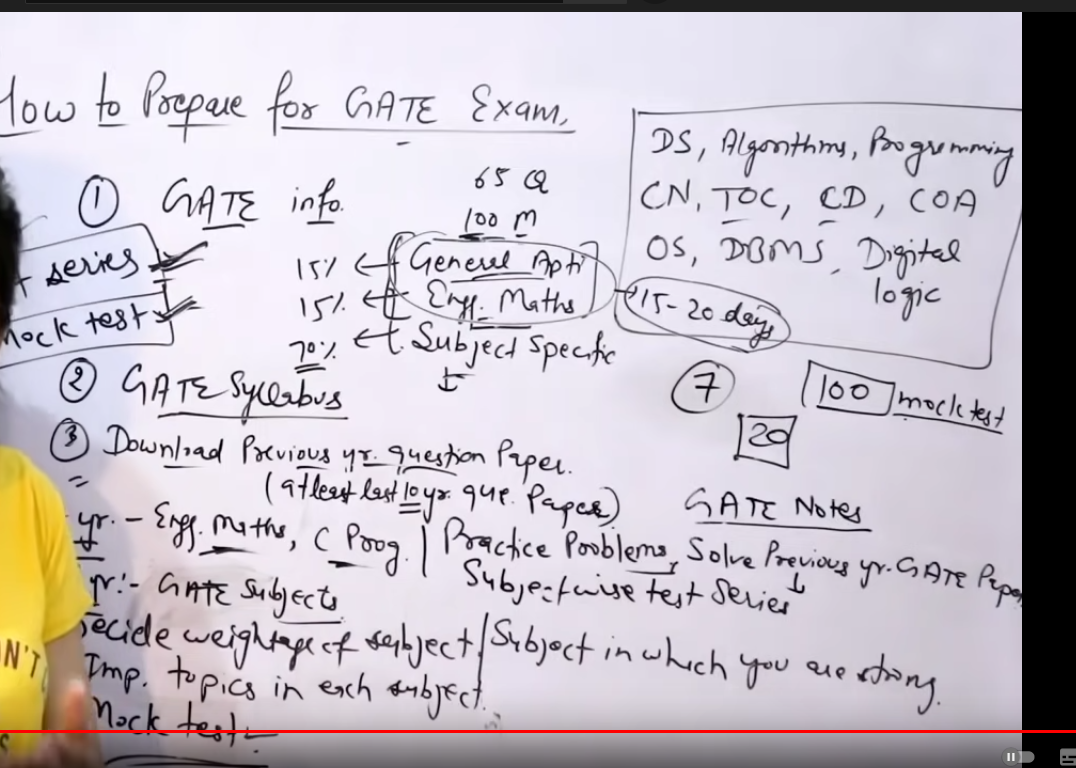 How to Prepare for GATE Exam,
① GATE info.
65 Q
100 M
15% General Apti
15% Engg. Maths
15-20 days
70% Subject Specific
series
mock test
DS, Algorithms, Programming
CN, TOC, CD, COA
OS, DBMS, Digital
logic
② GATE Syllabus
⑦
100 mock test
20
③ Download Previous yr. question Paper.
(atleast last 10 yr. que. Paper)
GATE Notes
yr. - Engg. Maths, C Prog. | Practice Problems, Solve Previous yr. GATE Paper
Subjectwise test Series
yr:- GATE Subjects
Decide weightage of subject / Subject in which you are strong.
Imp. topics in each subject.
Mock test -
N'T